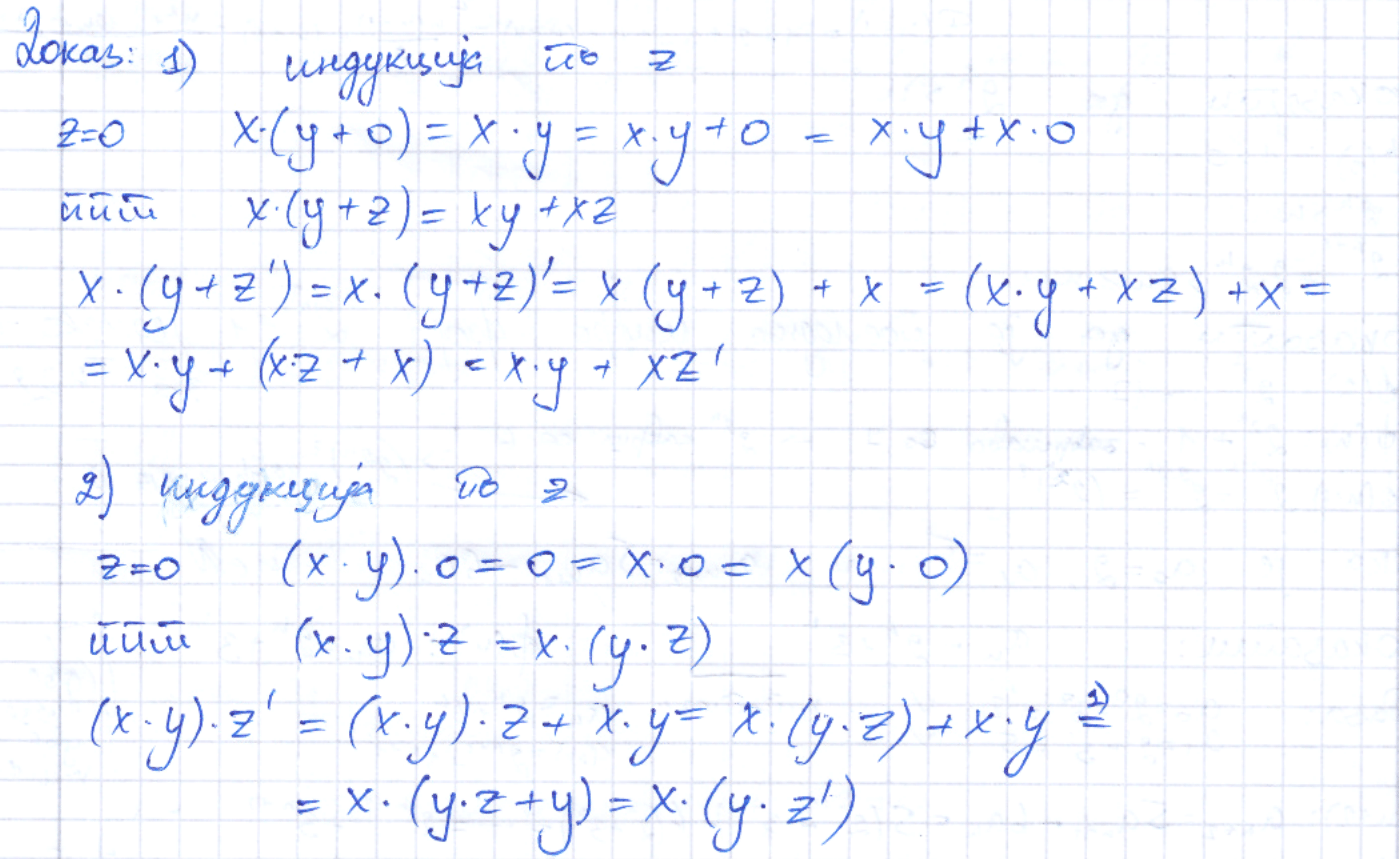 Доказ: 1) индукција по z
z=0 x·(y+0) = x·y = x·y+0 = x·y+x·0
ппт x·(y+z) = xy+xz
x·(y+z') = x·(y+z)' = x(y+z) + x = (x·y + xz) + x =
= x·y + (x·z + x) = x·y + xz'
2) индукција по z
z=0 (x·y)·0 = 0 = x·0 = x(y·0)
ппт (x·y)·z = x·(y·z)
(x·y)·z' = (x·y)·z + x·y = x·(y·z) + x·y =¹⁾
= x·(y·z+y) = x·(y·z')